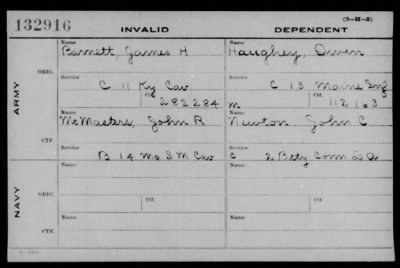 132916
INVALID
DEPENDENT
(3-H-5)
Name
Barnett, James H
Name
Haughey, Owen
ARMY
ORIG.
Service
C 11 Ky Cav
Service
C 15 Maine Inf
Ctf.
282284
Ctf.
112163
Name
McMasters, John R
Name
m
Newton John C
CTF.
Service
B 14 Mo S M Cav
Service
C 2 Btty Conn L A
NAVY
Name
Name
ORIG.
Service
Ctf.
Service
Ctf.
Name
Name
CTF.
Service
Service